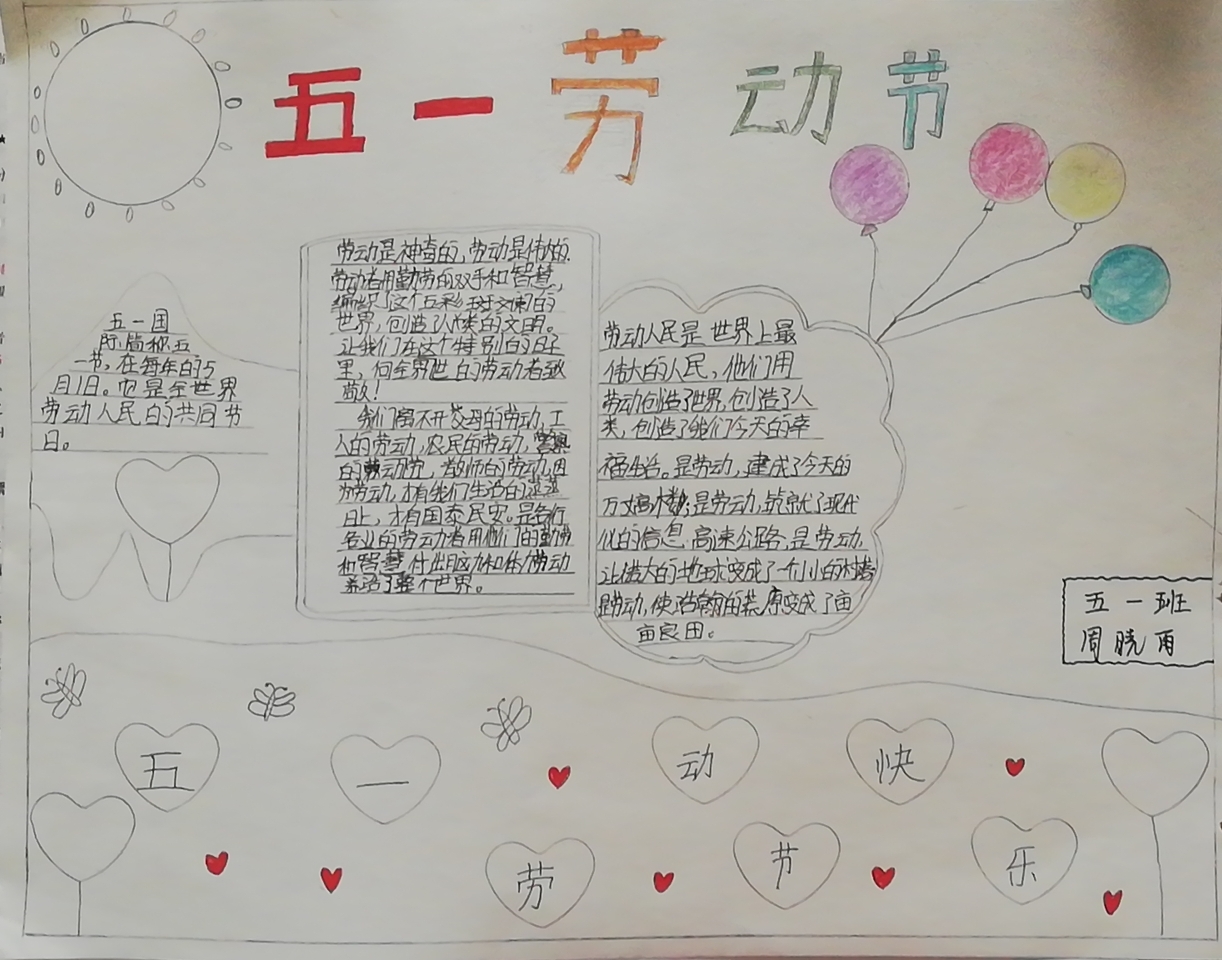 五一劳动节
五一国
际,简称五
一节,在每年的5
月1日。它是全世界
劳动人民的共同节
日。
劳动是神奇的,劳动是伟大的.
劳动者用勤劳的双手和智慧,
编织了这个五彩斑斓的
世界,创造了人类的文明。
让我们在这个特别的日子
里,向全界世的劳动者致
敬!
我们离不开父母的劳动,工
人的劳动,农民的劳动,警察
的劳动,教师的劳动,因
为劳动,才有我们生活的蒸蒸
日上,才有国泰民安。是各行
各业的劳动者用他们的勤劳
和智慧,付出脑力和体力劳动
养活了整个世界。
劳动人民是世界上最
伟大的人民,他们用
劳动创造了世界,创造了人
类,创造了我们今天的幸
福生活。是劳动,建成了今天的
万丈高楼;是劳动,筑就了现代
化的信息高速公路,是劳动,
让偌大的地球变成了一个小小的村落
是劳动,使浩瀚的荒原变成了亩
亩良田。
五一班
周晓雨
五一劳动节快乐